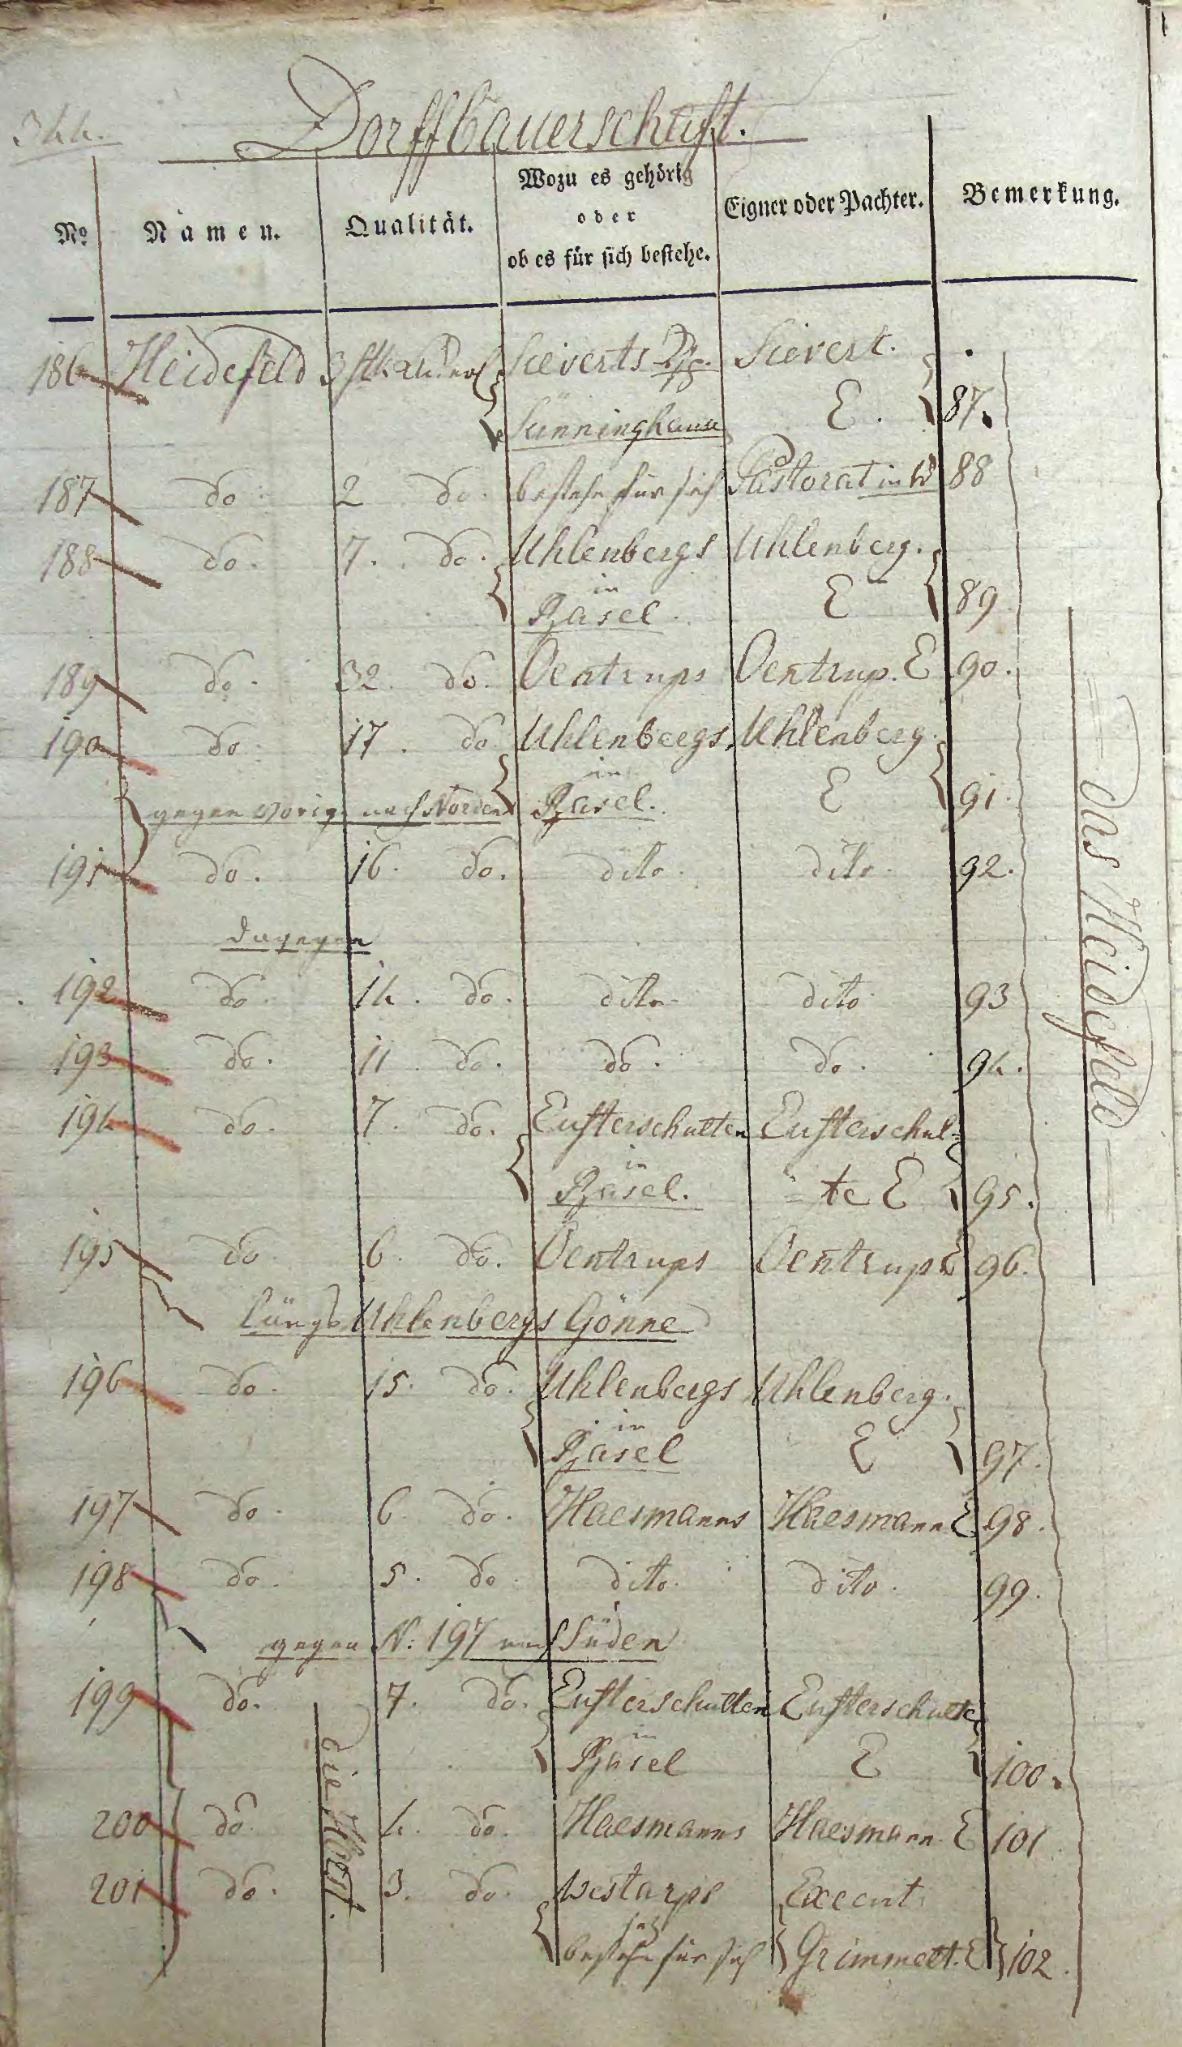 Dorffbauerschaft.
344.
No Namen. Qualität. Wozu es gehörig oder ob es für sich bestehe. Eigner oder Pachter. Bemerkung.
186 Heidefeld 3 Sieverts Sievert.
Sünninghausen E. 87.
187 do 2 do. bestehe für sich Pastorat in 88
188 do. 7. do. Uhlenbergs Uhlenberg.
in
Däsel. E 89
189 do. 32. do. Oentrups Oentrup. E 90.
190 do 17. do Uhlenbergs Uhlenberg.
in
gegen vorig. nach Norden Däsel. E 91.
191 do. 16. do. dito. dito. 92.
dagegen
192 do 14. do. dito. dito 93
193 do. 11 do. do. do. 94.
194 do. 7. do. Eusterschulten Eusterschul=
in
Däsel. =te E 95.
195 do 6. do. Oentrups Oentrup E 96.
längs Uhlenbergs Gönne
196 do. 15. do. Uhlenbergs Uhlenberg.
in
Däsel E 97.
197 do 6. do. Haesmanns Haesmann E 98.
198 do. 5. do. dito. dito. 99.
gegen N: 197 nach Süden
199 do. 7. do. Eusterschulten Eusterschulte
in
Däsel E 100.
200 do 4. do. Haesmanns Haesmann. E 101
201 do. 3. do. Westarps Execut
bestehe für sich Grimmelt. E 102.
das Heidefeld
die Horst.